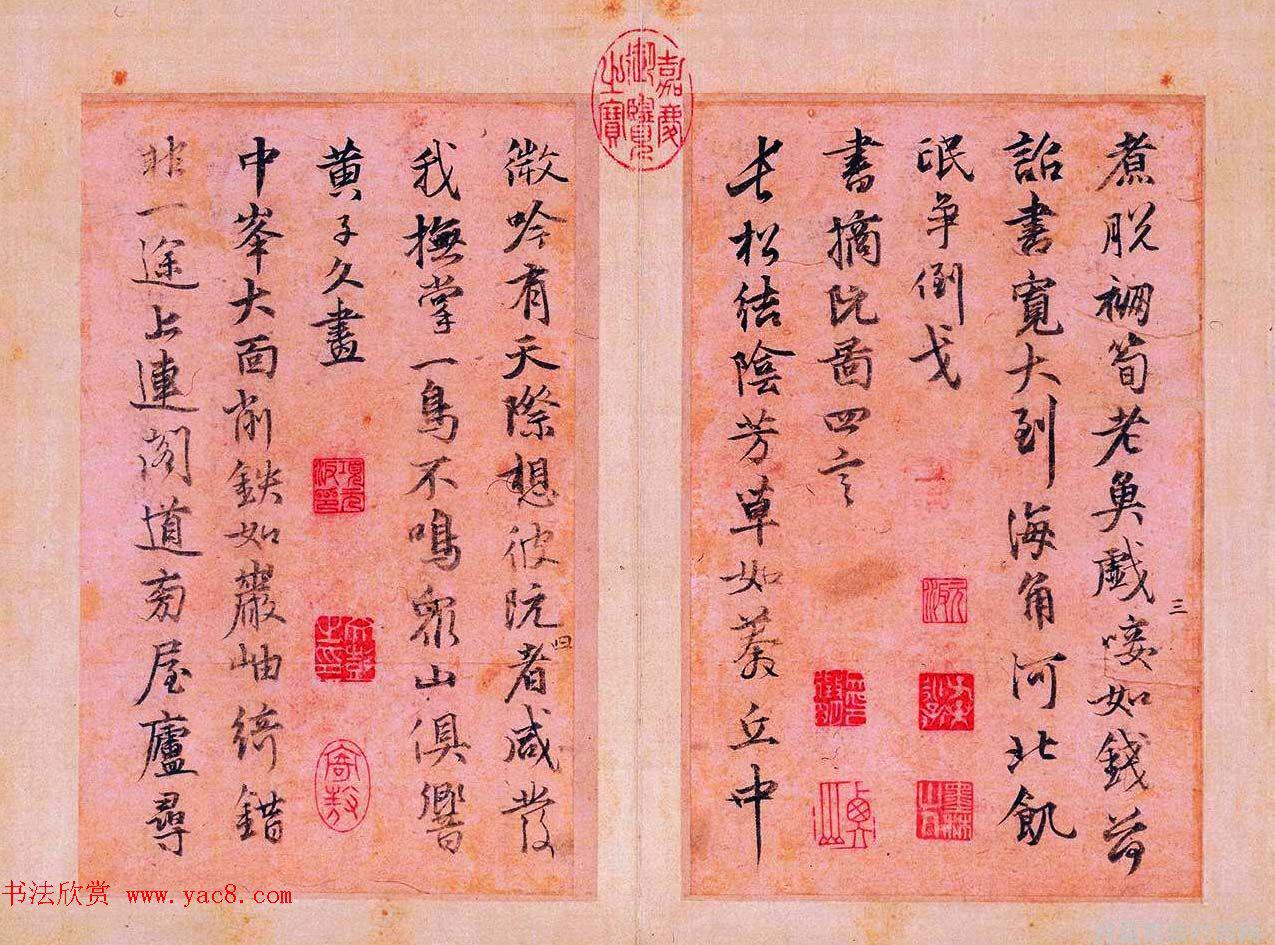 煮脱裯筍老魚戲唼如錢荷
詔書寬大到海角河北飢
氓争倒戈
書摘阮啚四言
長松結陰芳草如菶丘中
三
嘉慶御覽之寶
微吟有天際想彼阮者咸發
我撫掌一鳥不鳴衆山俱響
黄子久畫
中峯大面削鉄如巖岫綺錯
非一途上連閣道旁屋廬尋
書法欣赏 www.yac8.com